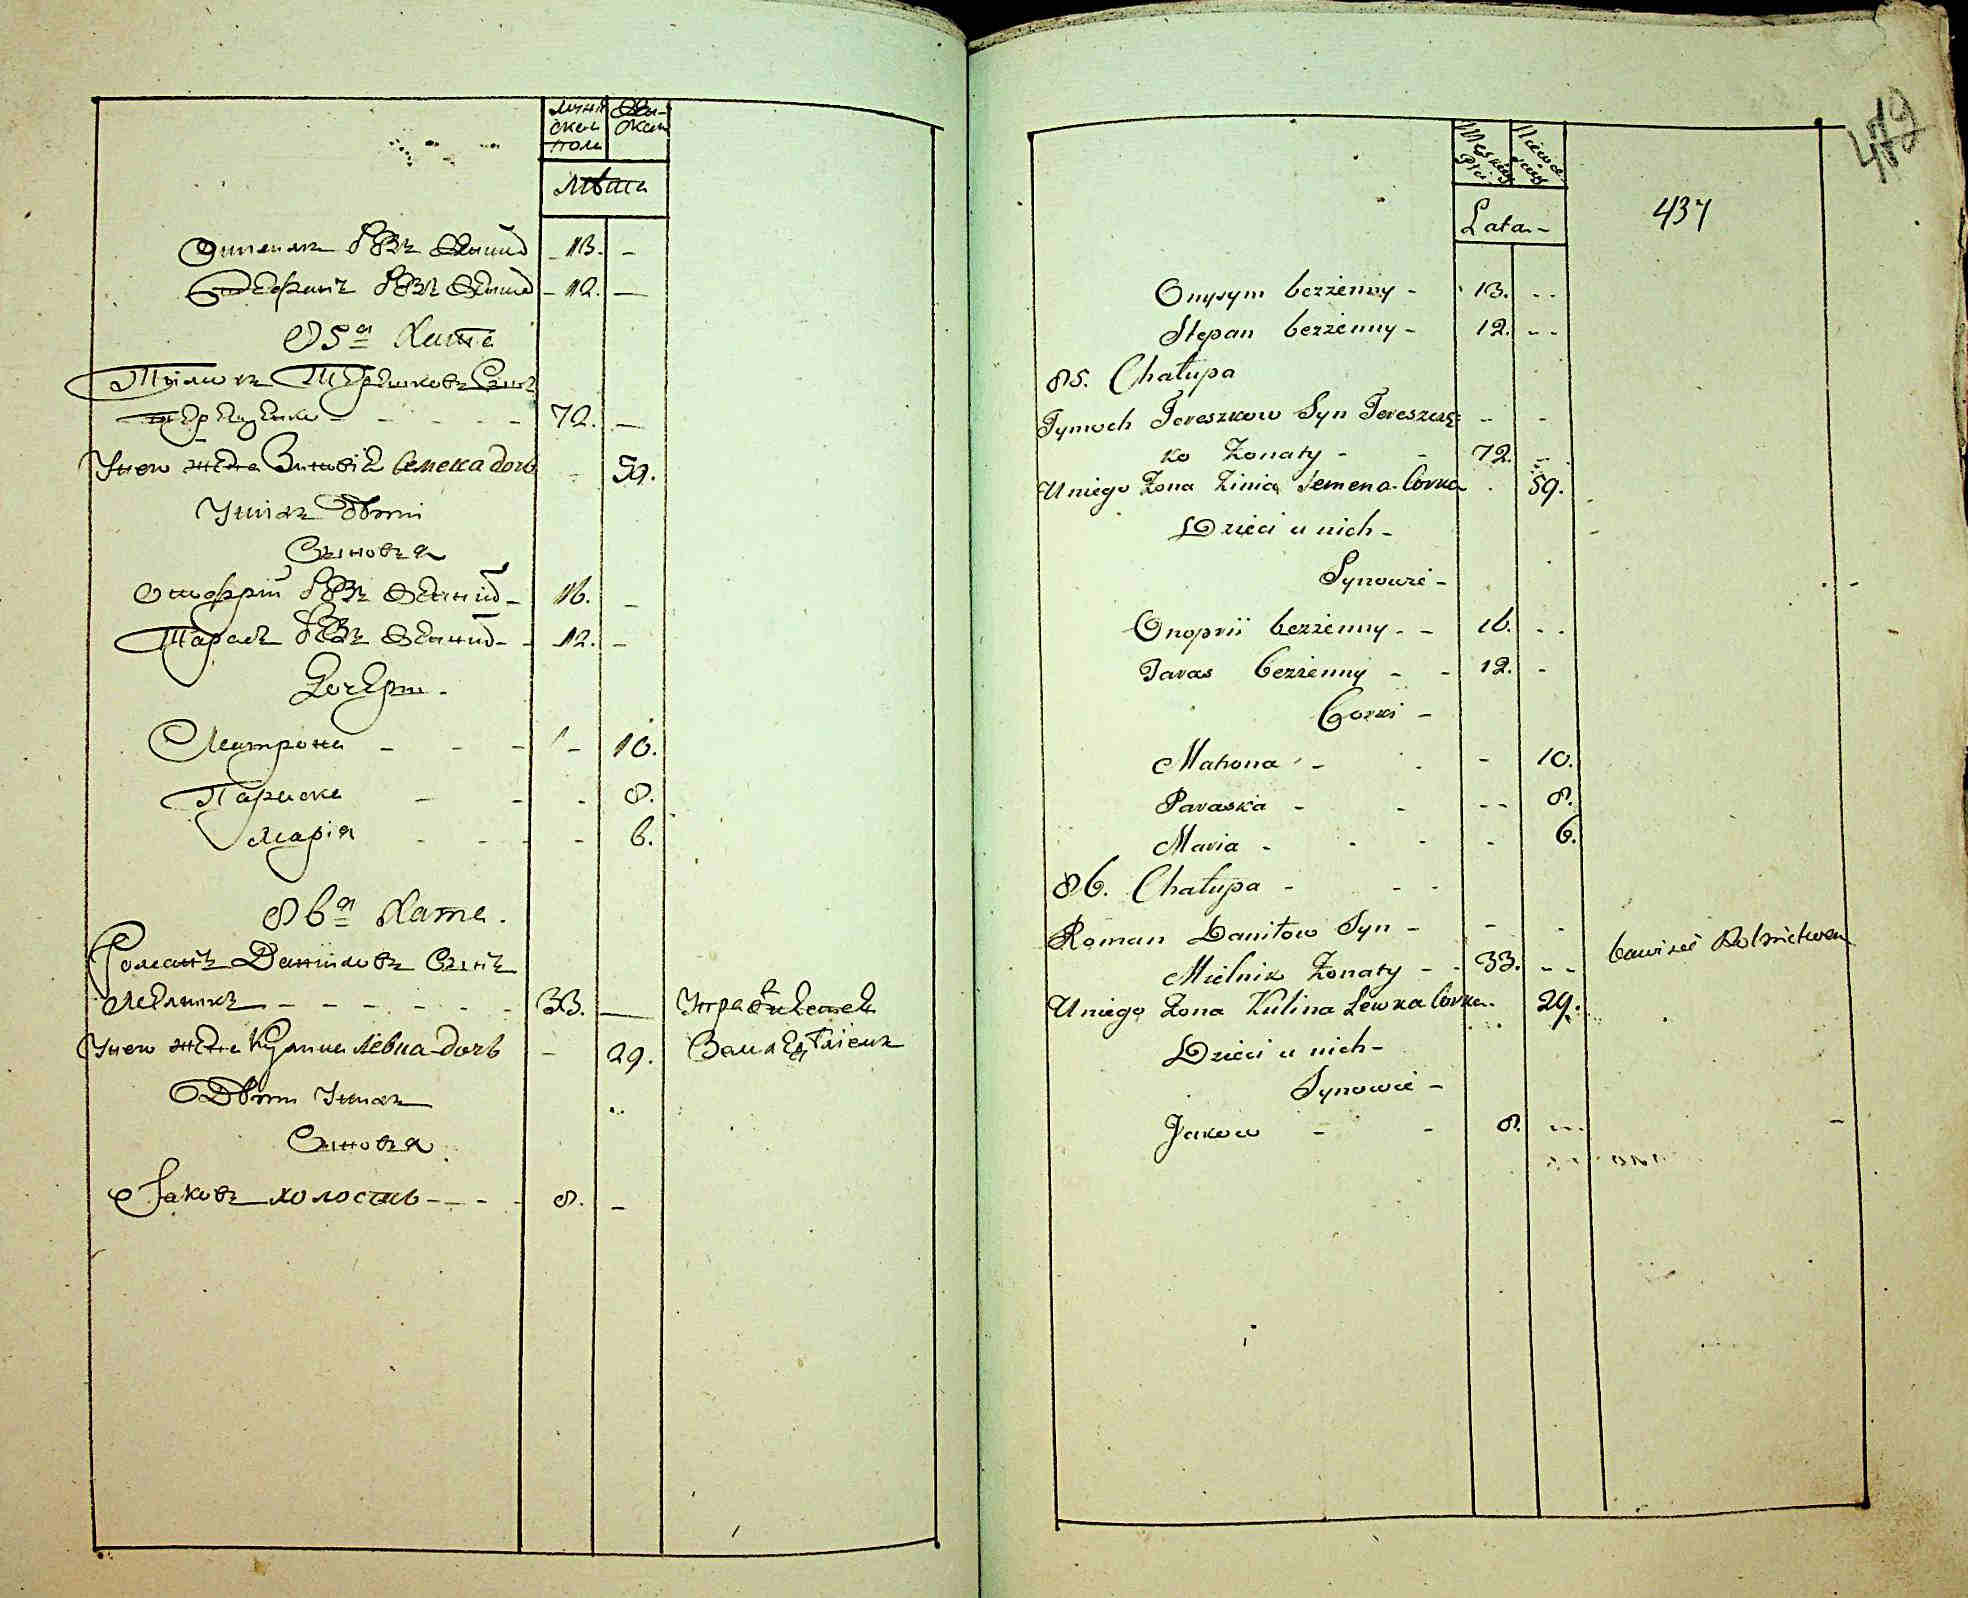 Мужи
ской
полъ
Жен-
ской
Лѣта
Онисимъ без женній - 13. -
Стефанъ без женній - 12. -
85а Хата
Тимошъ Терешковъ Синъ
Терещенко - - - - 72. -
У него жена Зиновія Семена дочь - 59.
У нихъ Дѣти
Синовья
Онофрій без женній - 16. -
Тарасъ без женній - 12. -
Дочери -
Матрона - - - - 10.
Параска - - - 8.
Марія - - - 6.
86а Хата.
Романъ Даниловъ Синъ
Мелникъ - - - - - 33. -
У него жена Кулина Левка дочь - 29.
Землед
Дѣти У нихъ
Синовья
Яковъ холостъ - - - - 8. -
479
437
Męskiey
Płci
Niewie
sciey
Lata -
Onysym bezżenny - 13. - -
Stepan bezżenny - 12. - -
85. Chałupa
Tymoch Tereszkow Syn Tereszczę - -
ko Żonaty - - 72. -
U niego Żona Zinia Semena Corka - 59.
Dzieci u nich -
Synowie -
Onoprii bezżenny - - 16. - -
Taras bezżenny - - 12. -
Corki -
Matrona - - - 10.
Paraska - - - - 8.
Maria - - - - 6.
86. Chałupa - - -
Roman Daniłow Syn - - -
Mielnik Żonaty - - 33. - - bawi się Rolnictwem
U niego Żona Kulina Lewka Corka - 29.
Dzieci u nich -
Synowie -
Jakow - - 8. - -